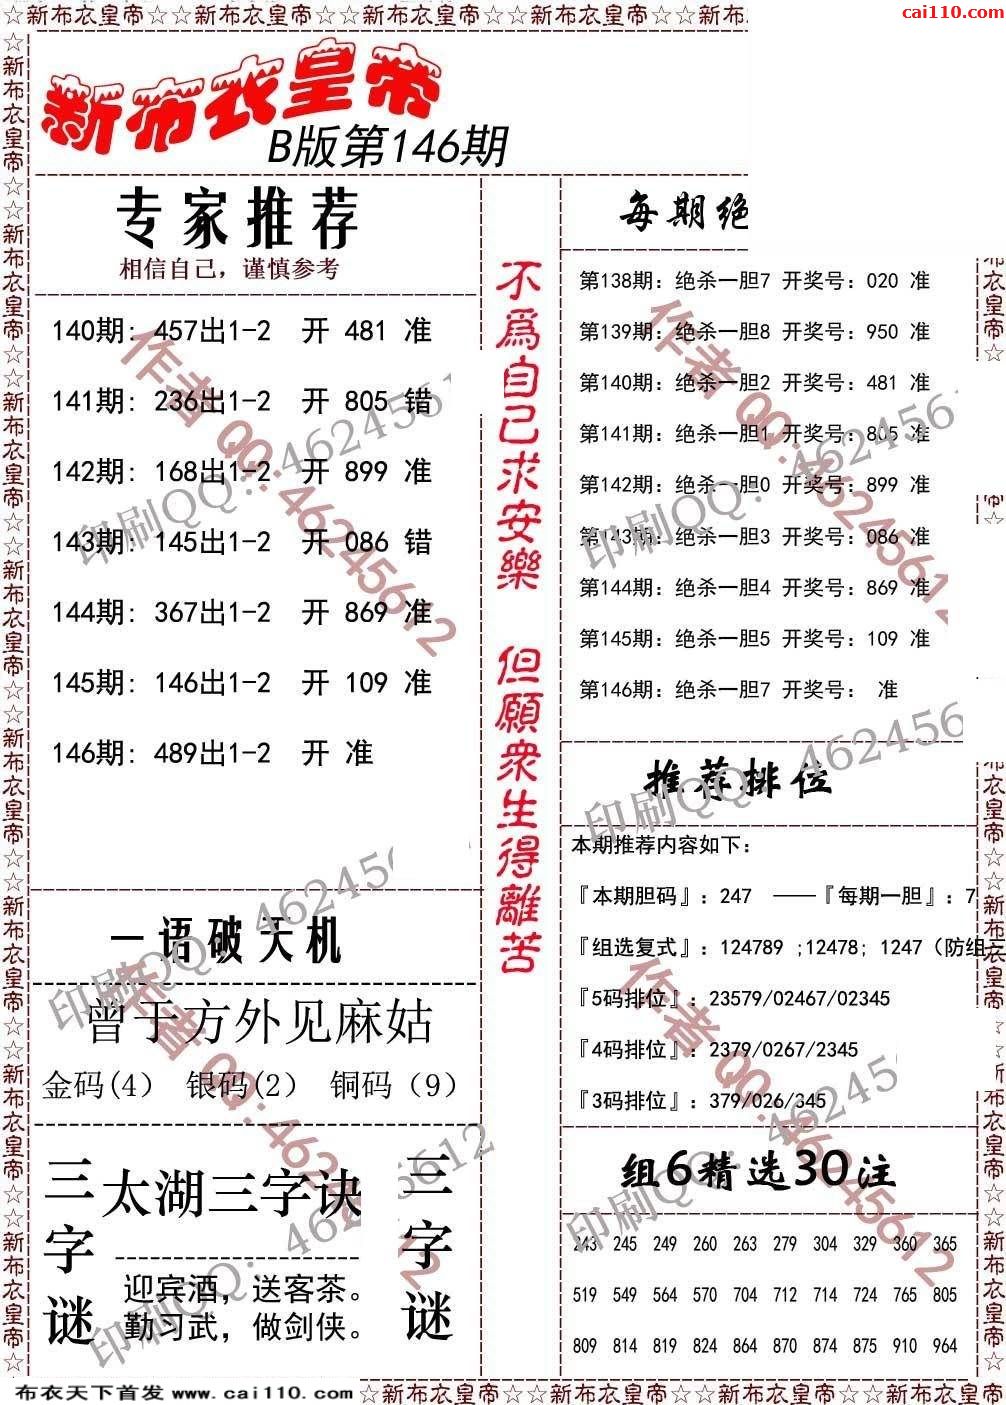 ☆新布衣皇帝☆☆新布衣皇帝☆☆新布衣皇帝☆☆新布衣皇帝☆☆新布
cai110.com
新布衣皇帝
B版第146期
专家推荐
相信自己，谨慎参考
140期: 457出1-2 开 481 准
141期: 236出1-2 开 805 错
142期: 168出1-2 开 899 准
143期: 145出1-2 开 086 错
144期: 367出1-2 开 869 准
145期: 146出1-2 开 109 准
146期: 489出1-2 开 准
一语破天机
曾于方外见麻姑
金码(4) 银码(2) 铜码（9）
三字谜
太湖三字诀
迎宾酒，送客茶。
勤习武，做剑侠。
三字谜
不爲自己求安樂 但願衆生得離苦
每期绝
第138期: 绝杀一胆7 开奖号: 020 准
第139期: 绝杀一胆8 开奖号: 950 准
第140期: 绝杀一胆2 开奖号: 481 准
第141期: 绝杀一胆1 开奖号: 805 准
第142期: 绝杀一胆0 开奖号: 899 准
第143期: 绝杀一胆3 开奖号: 086 准
第144期: 绝杀一胆4 开奖号: 869 准
第145期: 绝杀一胆5 开奖号: 109 准
第146期: 绝杀一胆7 开奖号: 准
推荐排位
本期推荐内容如下:
『本期胆码』: 247 ——『每期一胆』: 7
『组选复式』: 124789 ;12478; 1247（防组三
『5码排位』: 23579/02467/02345
『4码排位』: 2379/0267/2345
『3码排位』: 379/026/345
组6精选30注
243 245 249 260 263 279 304 329 360 365
519 549 564 570 704 712 714 724 765 805
809 814 819 824 864 870 874 875 910 964
作者 QQ: 462245612
印刷QQ: 46245612
布衣天下首发 www.cai110.com
☆新布衣皇帝☆☆新布衣皇帝☆☆新布衣皇帝☆☆新布衣皇帝☆